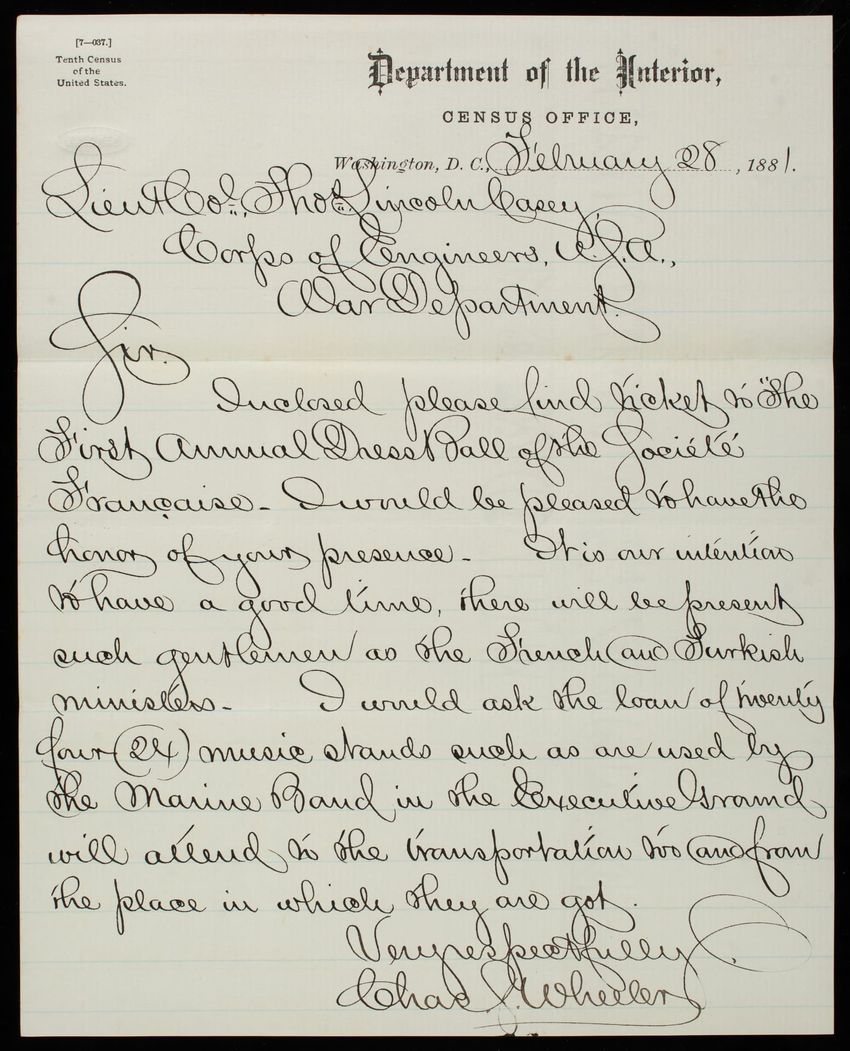 [7—037.]
Tenth Census
of the
United States.
Department of the Interior,
CENSUS OFFICE,
Washington, D. C., February 28, 1881.
Lieut Col., Thos. Lincoln Casey,
Corps of Engineers, U.S.A.,
War Department.
Sir.
Inclosed please find ticket to "The
First Annual Dress Ball of the Société
Française - I would be pleased to have the
honor of your presence - It is our intention
to have a good time, there will be present
such gentlemen as the French and Turkish
ministers - I would ask the loan of twenty
four (24) music stands such as are used by
the Marine Band in the Executive Ground
will attend to the transportation too and from
the place in which they are got.
Very respectfully
Chas. J. Wheeler